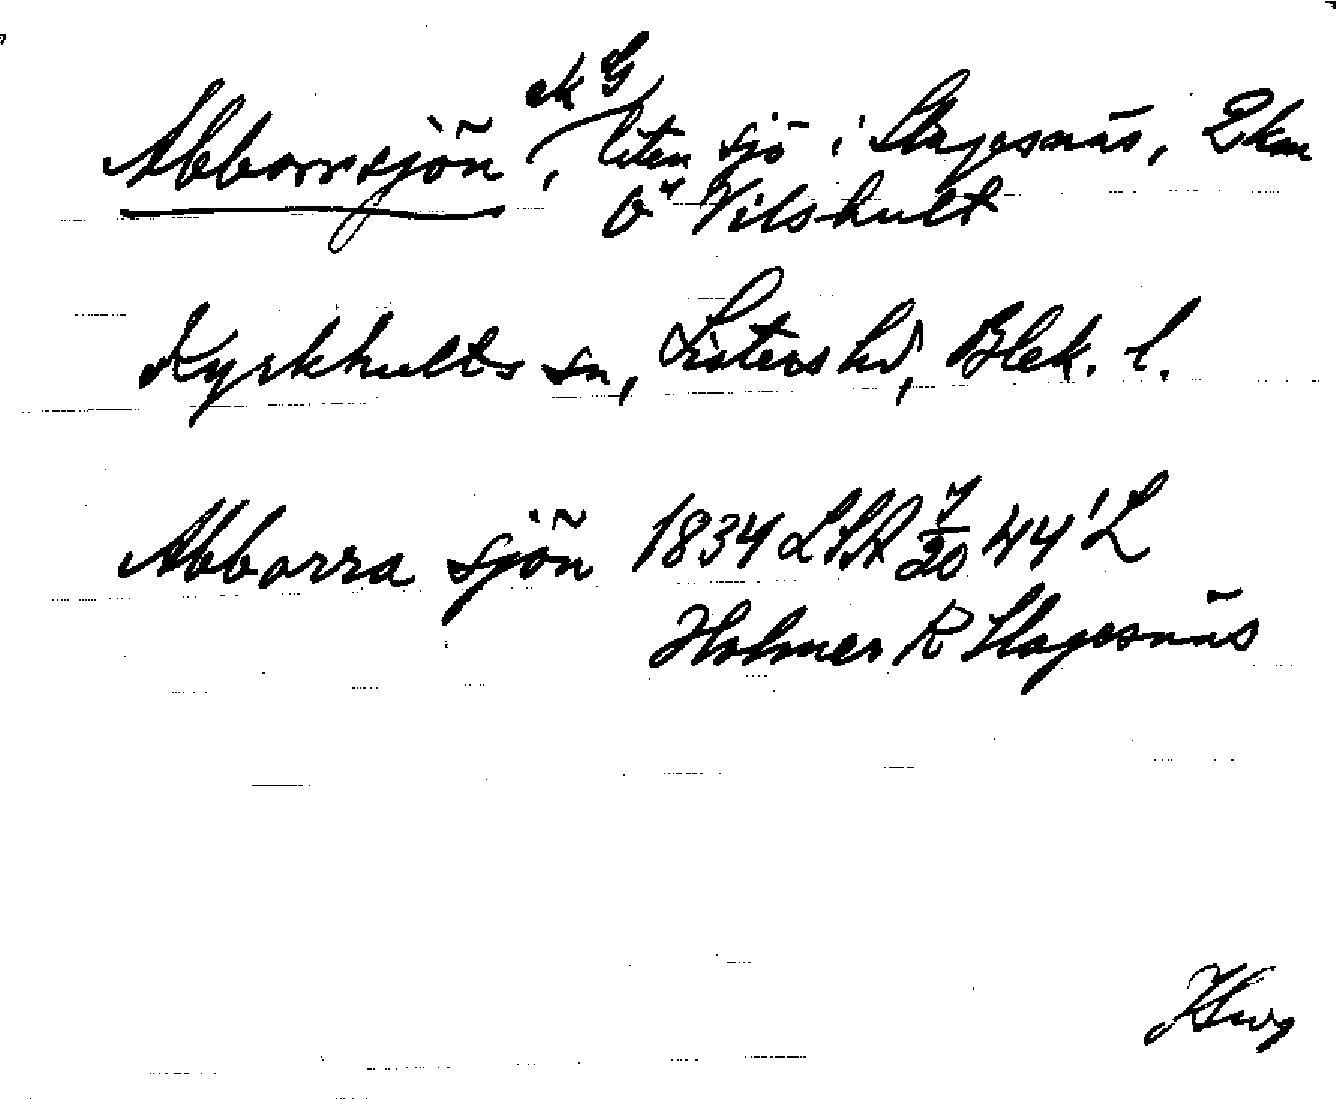 ek G
Abborrsjön, liten sjö i Slagesnäs, 2 km
Ö Vilshult
Kyrkhults sn, Listers hd, Blek. l.
Abborra sjön 1834 LSA 7/20 44' L
Holmer R Slagesnäs